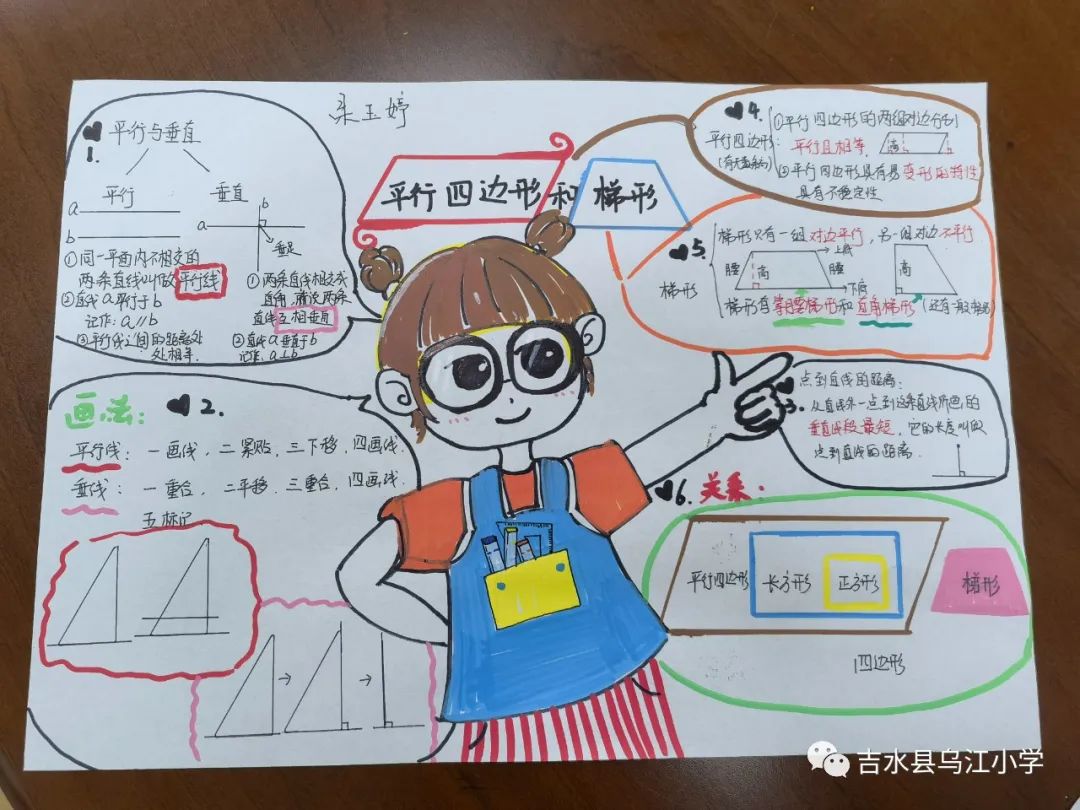 朱玉婷
平行四边形和梯形
1.
平行与垂直
平行
垂直
a
b
①同一平面内不相交的
两条直线叫做平行线
②直线a平行于b
记作:a∥b
③平行线之间的距离处
处相等.
b
a
垂足
①两条直线相交成
直角,就说两条
直线互相垂直
②直线a垂直于b
记作:a⊥b
画法:
2.
平行线:一画线,二紧贴,三下移,四画线.
垂线:一重合,二平移,三重合,四画线.
五标记
4.
平行四边形:
①平行四边形的两组对边分别
平行且相等.
高
②平行四边形具有易变形的特性
具有不稳定性
5.
梯形
梯形只有一组对边平行,另一组对边不平行.
上底
腰
高
腰
下底
高
梯形有等腰梯形和直角梯形(还有一般梯形)
3.
点到直线的距离:
从直线外一点到这条直线所画的
垂直线段最短,它的长度叫做
点到直线的距离.
6.
关系:
平行四边形
长方形
正方形
梯形
四边形
吉水县乌江小学